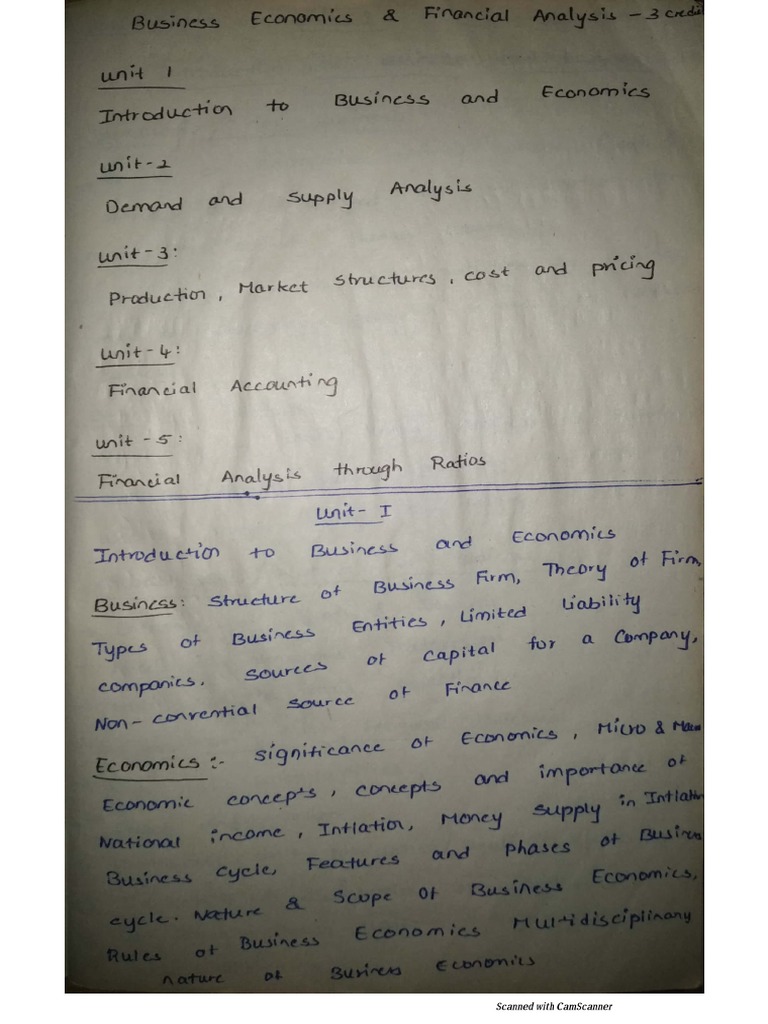 Business Economics & Financial Analysis - 3 credi
Unit 1
Introduction to Business and Economics
Unit-2
Demand and Supply Analysis
Unit-3:
Production, Market Structures, Cost and pricing
Unit-4:
Financial Accounting
Unit-5:
Financial Analysis through Ratios
Unit-I
Introduction to Business and Economics
Business: Structure of Business Firm, Theory of Firm,
Types of Business Entities, Limited Liability
companies. Sources of Capital for a Company,
Non-convential Source of Finance
Economics:- Significance of Economics, Micro & Macro
Economic concepts, concepts and importance of
National income, Inflation, Money Supply in Inflation
Business Cycle, Features and phases of Business
cycle. Nature & Scope of Business Economics,
Rules of Business Economics Multidisciplinary
nature of Business Economics
Scanned with CamScanner